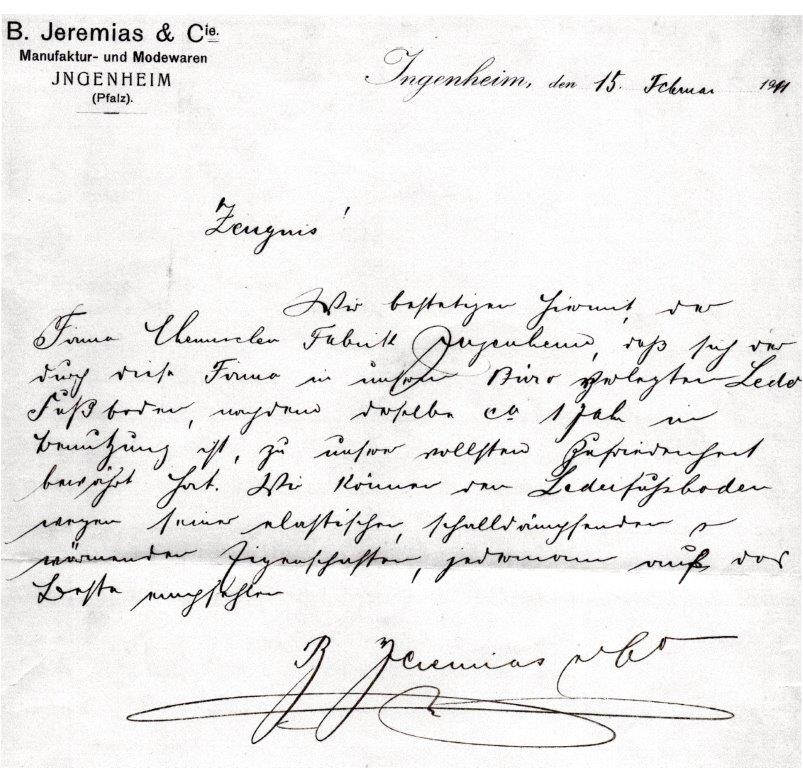 B. Jeremias & Cie.
Manufaktur- und Modewaren
JNGENHEIM
(Pfalz).
Ingenheim, den 15. Februar 1911
Zeugnis!
Wir bestätigen hiermit, der
Firma Chemischen Fabrik Ingenheim, daß sich der
durch diese Firma in unserem Büro verlegten Leder
Fußboden, nachdem derselbe ca 1 Jahr in
Benutzung ist, zu unserer vollsten Zufriedenheit
bewährt hat. Wir können den Lederfußboden
wegen seiner elastischen, schalldämpfenden &
wärmenden Eigenschaften, jedermann aufs das
Beste empfehlen
B Jeremias & Co